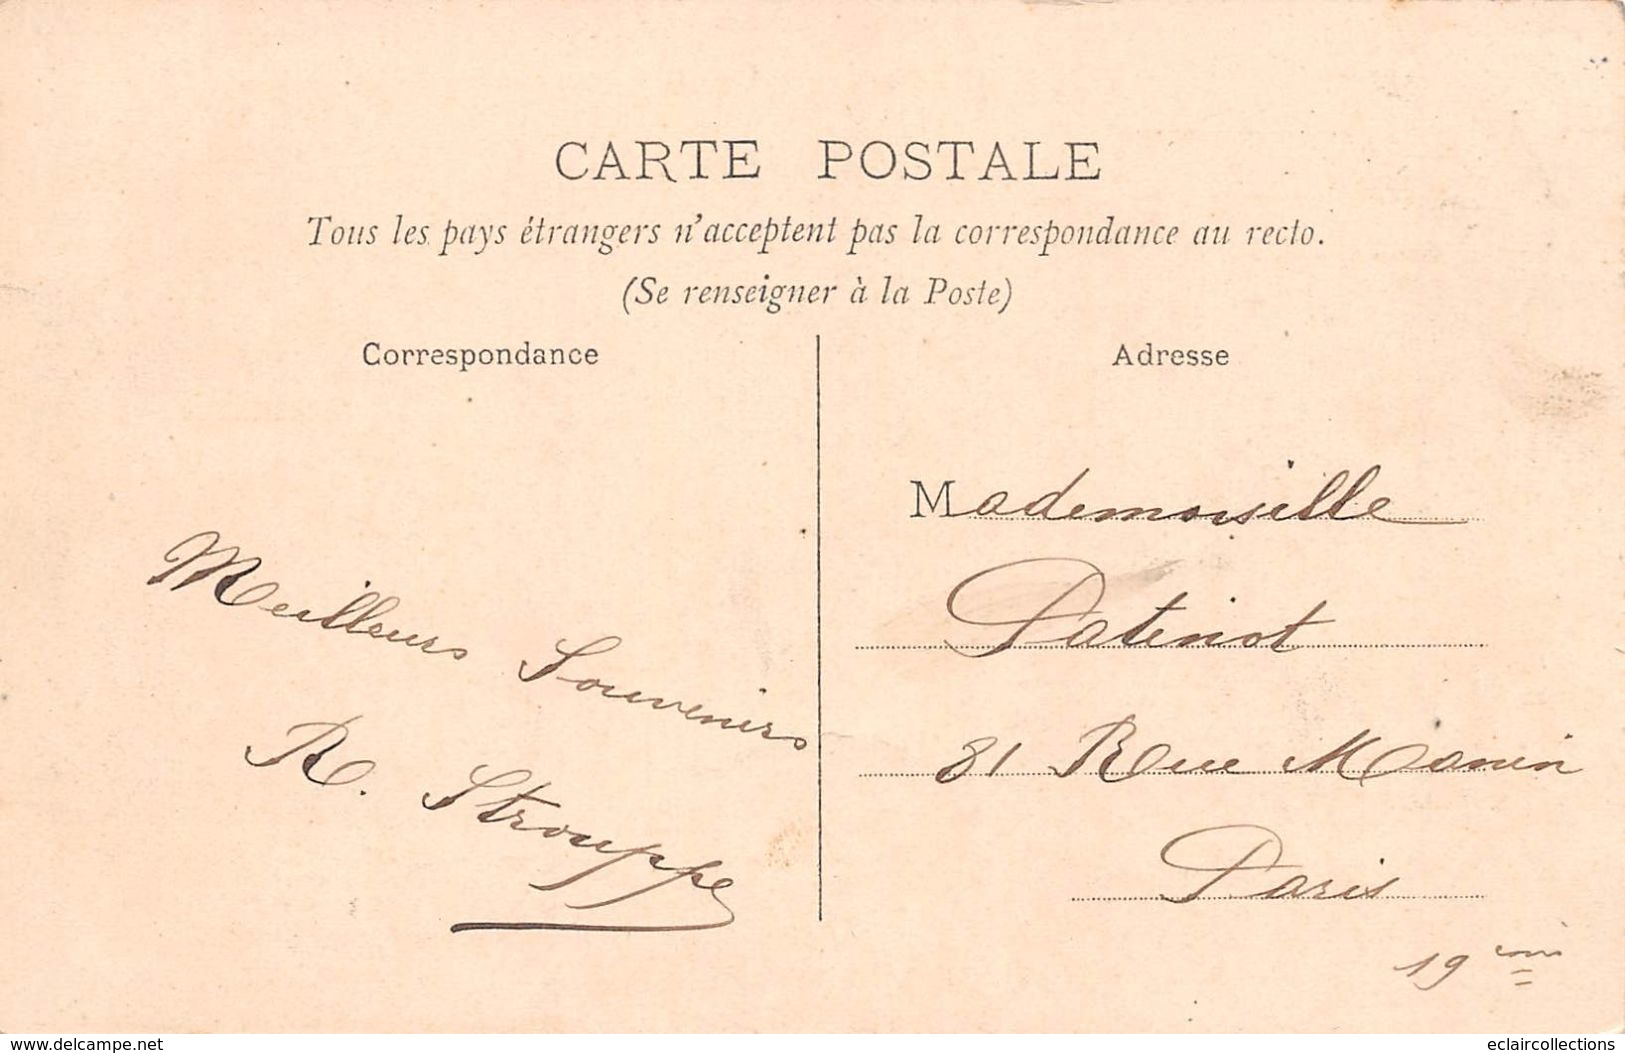 CARTE POSTALE
Tous les pays étrangers n'acceptent pas la correspondance au recto.
(Se renseigner à la Poste)
Correspondance
Meilleurs Souvenirs
R. Strouppe
Adresse
Mademoiselle
Patinot
81 Rue Manin
Paris
19eme
www.delcampe.net
eclaircollections